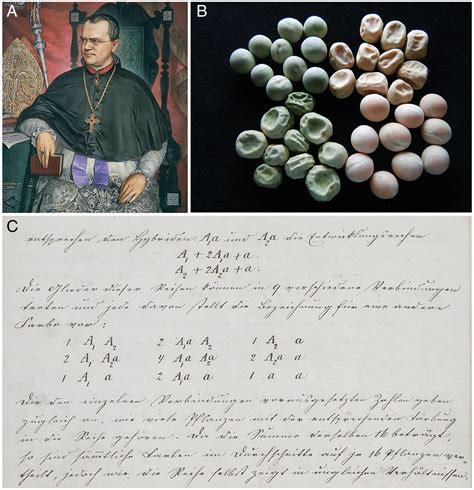 A
B
C
entsprechen den Hybriden A₁a und A₂a die Entwicklungsreihen
A₁ + 2A₁a + a.
A₂ + 2A₂a + a.
Die Glieder dieser Reihen können in 9 verschiedene Verbindungen
treten und jede davon stellt die Bezeichnung für eine andere
Farbe vor:
1 A₁ A₂ 2 A₁a A₂ 1 A₂ a
2 A₁ A₂a 4 A₁a A₂a 2 A₂a a
1 A₁ a 2 A₁a a 1 a a
Die den einzelnen Verbindungen vorausgesetzten Zahlen geben
zugleich an, wie viele Pflanzen mit der entsprechenden Färbung
in die Reihe gehören. Da die Summe derselben 16 beträgt,
so sind sämtliche Farben im Durchschnitte auf je 16 Pflanzen ver-
theilt, jedoch wie die Reihe selbst zeigt in ungleichen Verhältnissen.